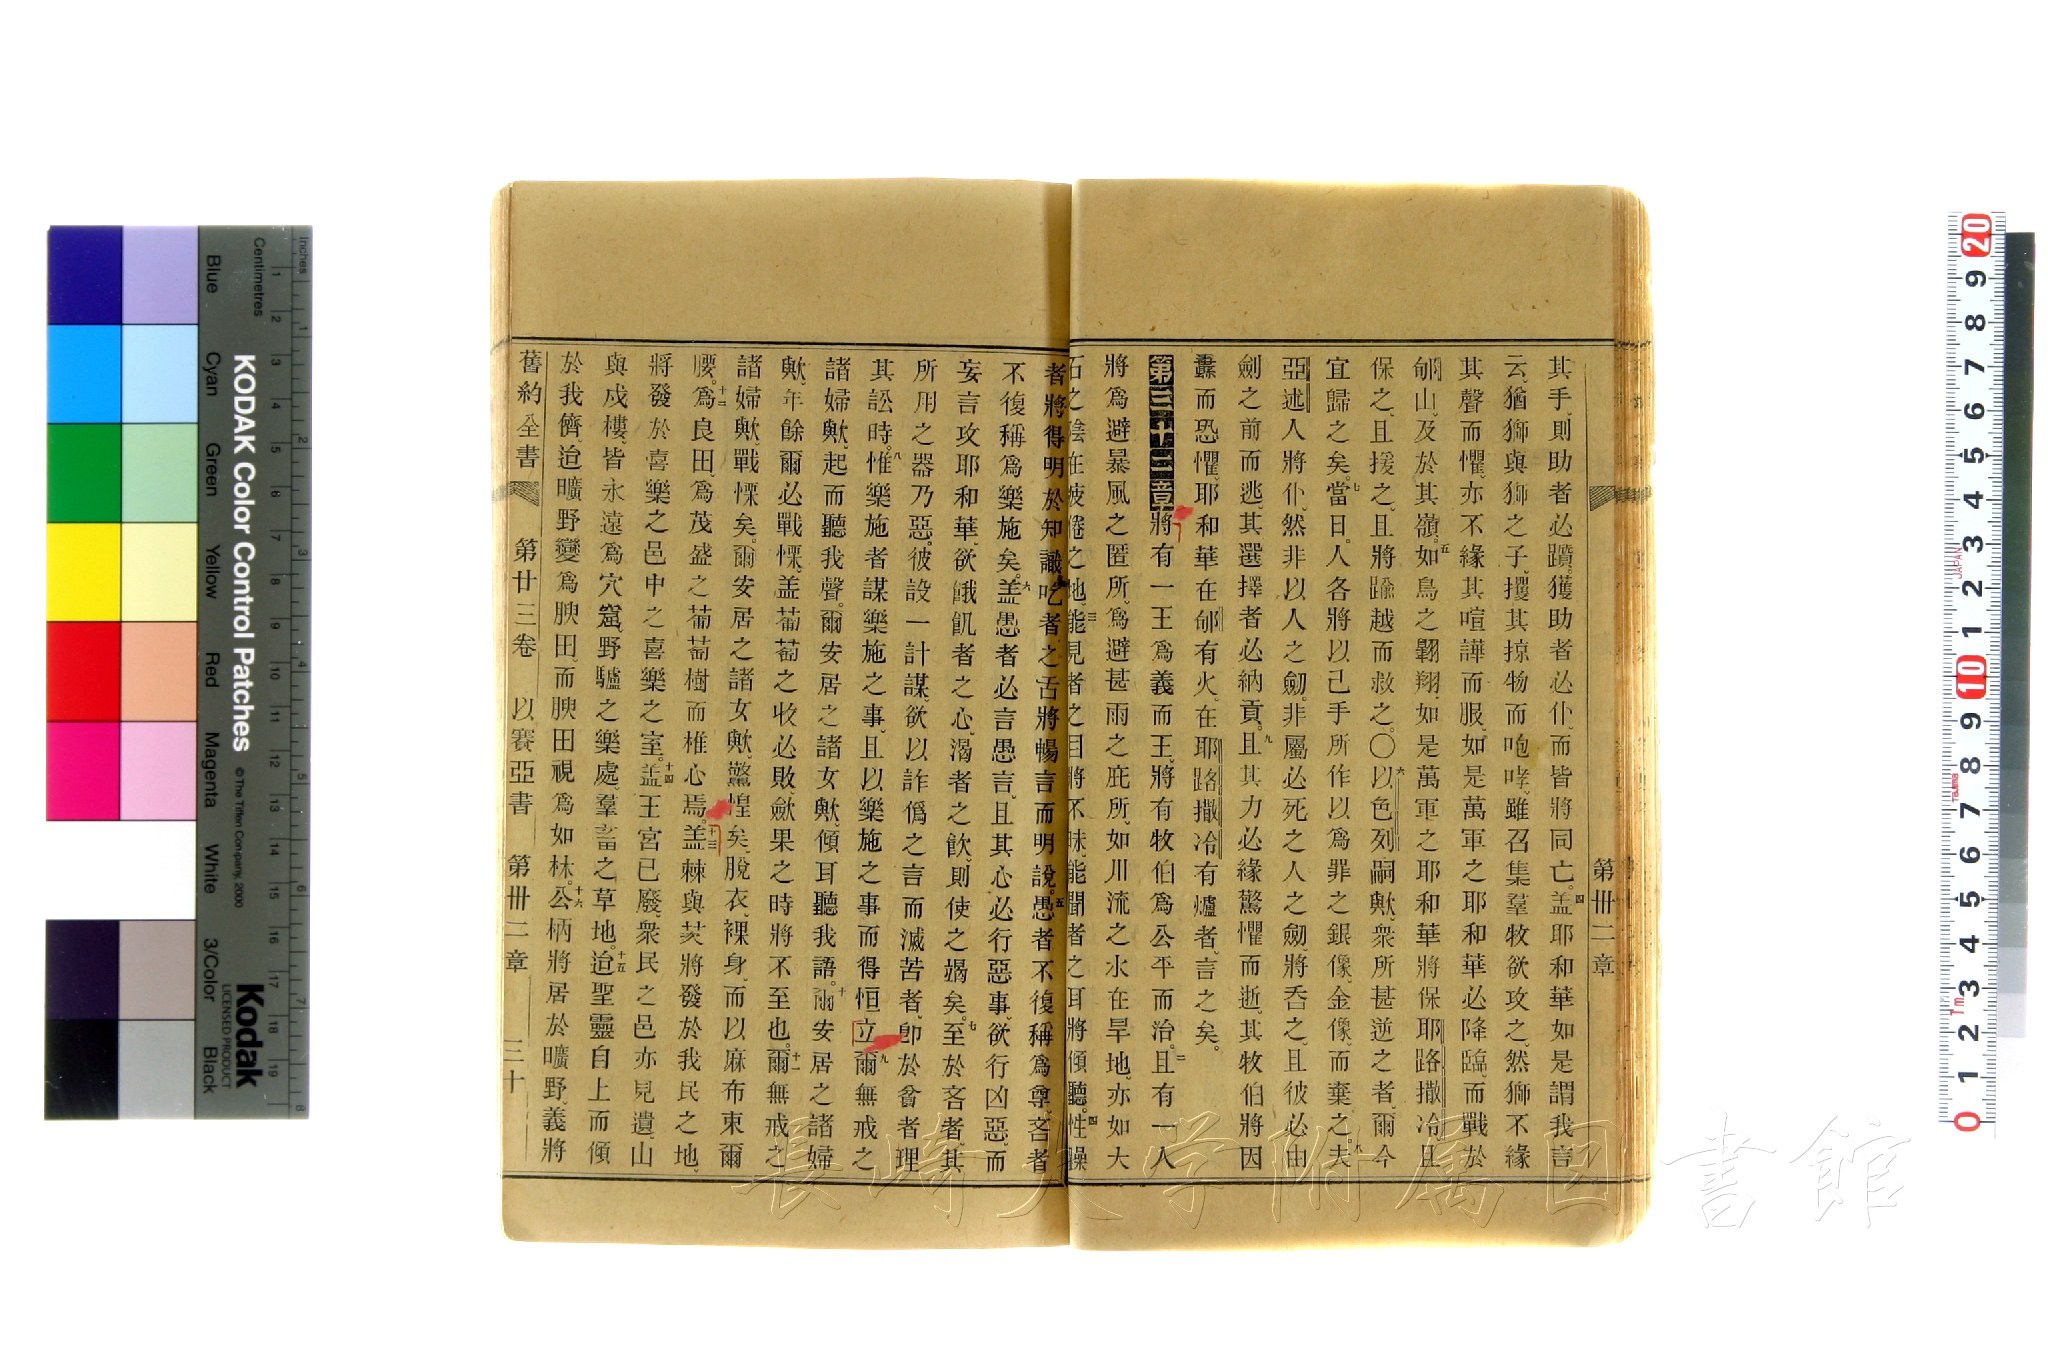 其手、則助者必躓、獲助者必仆、而皆將同亡。四盖耶和華如是謂我言
云、猶獅與獅之子、攫其掠物而咆哮、雖召集羣牧欲攻之、然獅不緣
其聲而懼、亦不緣其喧譁而服、如是萬軍之耶和華必降臨、而戰於
郇山、及於其嶺。五如鳥之翺翔、如是萬軍之耶和華將保耶路撒冷、且
保之、且援之、且將踰越而救之。〇六以色列嗣歟、衆所甚逆之者、爾今
宜歸之矣。七當日、人各將以己手所作以爲罪之銀像、金像、而棄之。八夫
亞述人將仆、然非以人之劒、非屬必死之人之劒、將呑之、且彼必由
劍之前而逃、其選擇者必納貢、九且其力必緣驚懼而逝、其牧伯將因
纛而恐懼、耶和華在郇有火、在耶路撒冷有爐者、言之矣。
第三十二章 將有一王爲義而王、將有牧伯爲公平而治。二且有一人
將爲避暴風之匿所、爲避甚雨之庇所、如川流之水在旱地、亦如大
石之陰在疲倦之地、三能見者之目將不昧、能聞者之耳將傾聽。四性躁
者將得明於知識、吃者之舌將暢言而明說。五愚者不復稱爲尊、吝者
不復稱爲樂施矣。六盖愚者必言愚言、且其心必行惡事、欲行凶惡、而
妄言攻耶和華、欲餓飢者之心、渴者之飲、則使之竭矣。七至於吝者、其
所用之器乃惡、彼設一計謀、欲以詐僞之言而滅苦者、卽於貧者理
其訟時、八惟樂施者謀樂施之事、且以樂施之事而得恒立、九爾無戒之
諸婦歟、起而聽我聲、爾安居之諸女歟、傾耳聽我語。十爾安居之諸婦
歟、年餘爾必戰慄、盖葡萄之收必敗、歛果之時將不至也。十一爾無戒之
諸婦歟、戰慄矣。爾安居之諸女歟、驚惶矣、脫衣、裸身、而以麻布東爾
腰。十二爲良田、爲茂盛之葡萄樹而椎心焉。十三盖棘與芺將發於我民之地、
將發於喜樂之邑中之喜樂之室。十四盖王宮已廢、衆民之邑亦見遺、山
與戍樓、皆永遠爲穴窟、野驢之樂處、羣畜之草地、十五迨聖靈自上而傾
於我儕、迨曠野變爲腴田、而腴田視爲如林。十六公柄將居於曠野、義將
第卅二章
舊約全書 第廿三卷 以賽亞書 第卅二章 三十
長崎大学附属図書館
KODAK Color Control Patches
© The Tiffen Company, 2000
Kodak
LICENSED PRODUCT
Inches
Centimetres
Blue Cyan Green Yellow Red Magenta White 3/Color Black
1 2 3 4 5 6 7 8 9 10 11 12 13 14 15 16 17 18 19
1 2 3 4 5 6 7 8
20 9 8 7 6 5 4 3 2 1 10 9 8 7 6 5 4 3 2 1 0
JAPAN
Tajima